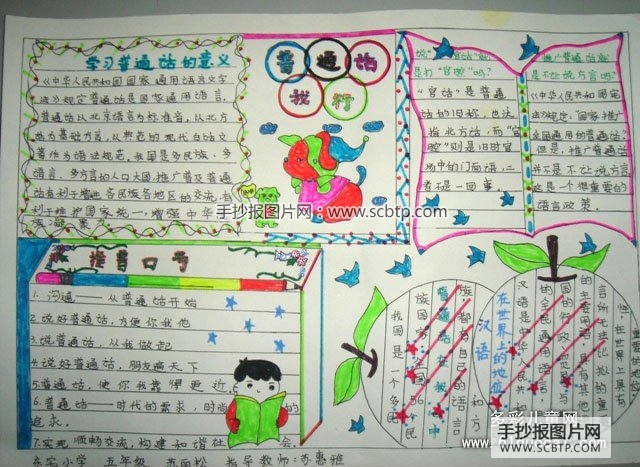 学习普通话的意义
《中华人民共和国国家通用语言文字
法》规定普通话是国家通用语言,
普通话以北京语言为标准音,以北方
话为基础方言,以典范的现代白话文
著作为语法规范,我国是多民族、多
语言、多方言的人口大国,推广普及普通
话有利于增进各民族各地区的交流,有
利于维护国家统一,增强中华
普通话
我行
说"普通话"就
是打"官腔"吗?
"官话"是普通
话的旧称,也泛
指北方话,而"官
腔"则是旧时官
场中的门面语,二
者不是一回事。
推广普通话就
是不让说方言吗?
《中华人民共和国宪
法》规定,"国家推广
全国通用的普通话"
但是,推广普通话
并不是不让说方言
这是一个很重要的
语言政策。
手抄报图片网:www.scbtp.com
推普口号
1. 沟通——从普通话开始
2. 说好普通话,方便你我他
3. 说普通话,从我做起
4. 说好普通话,朋友遍天下
5. 普通话,使你我靠得更近
6. 普通话——时代的需求,时尚的
追求。
7. 实现顺畅交流,构建和谐社会,
我国是一个多民
族国家,56个
族都有自己的语言
汉语
在世界上的地位
汉语是中华
东宅小学 五年级 指导教师:苏惠雅
多彩儿童网
手抄报图片网
www.scbtp.com